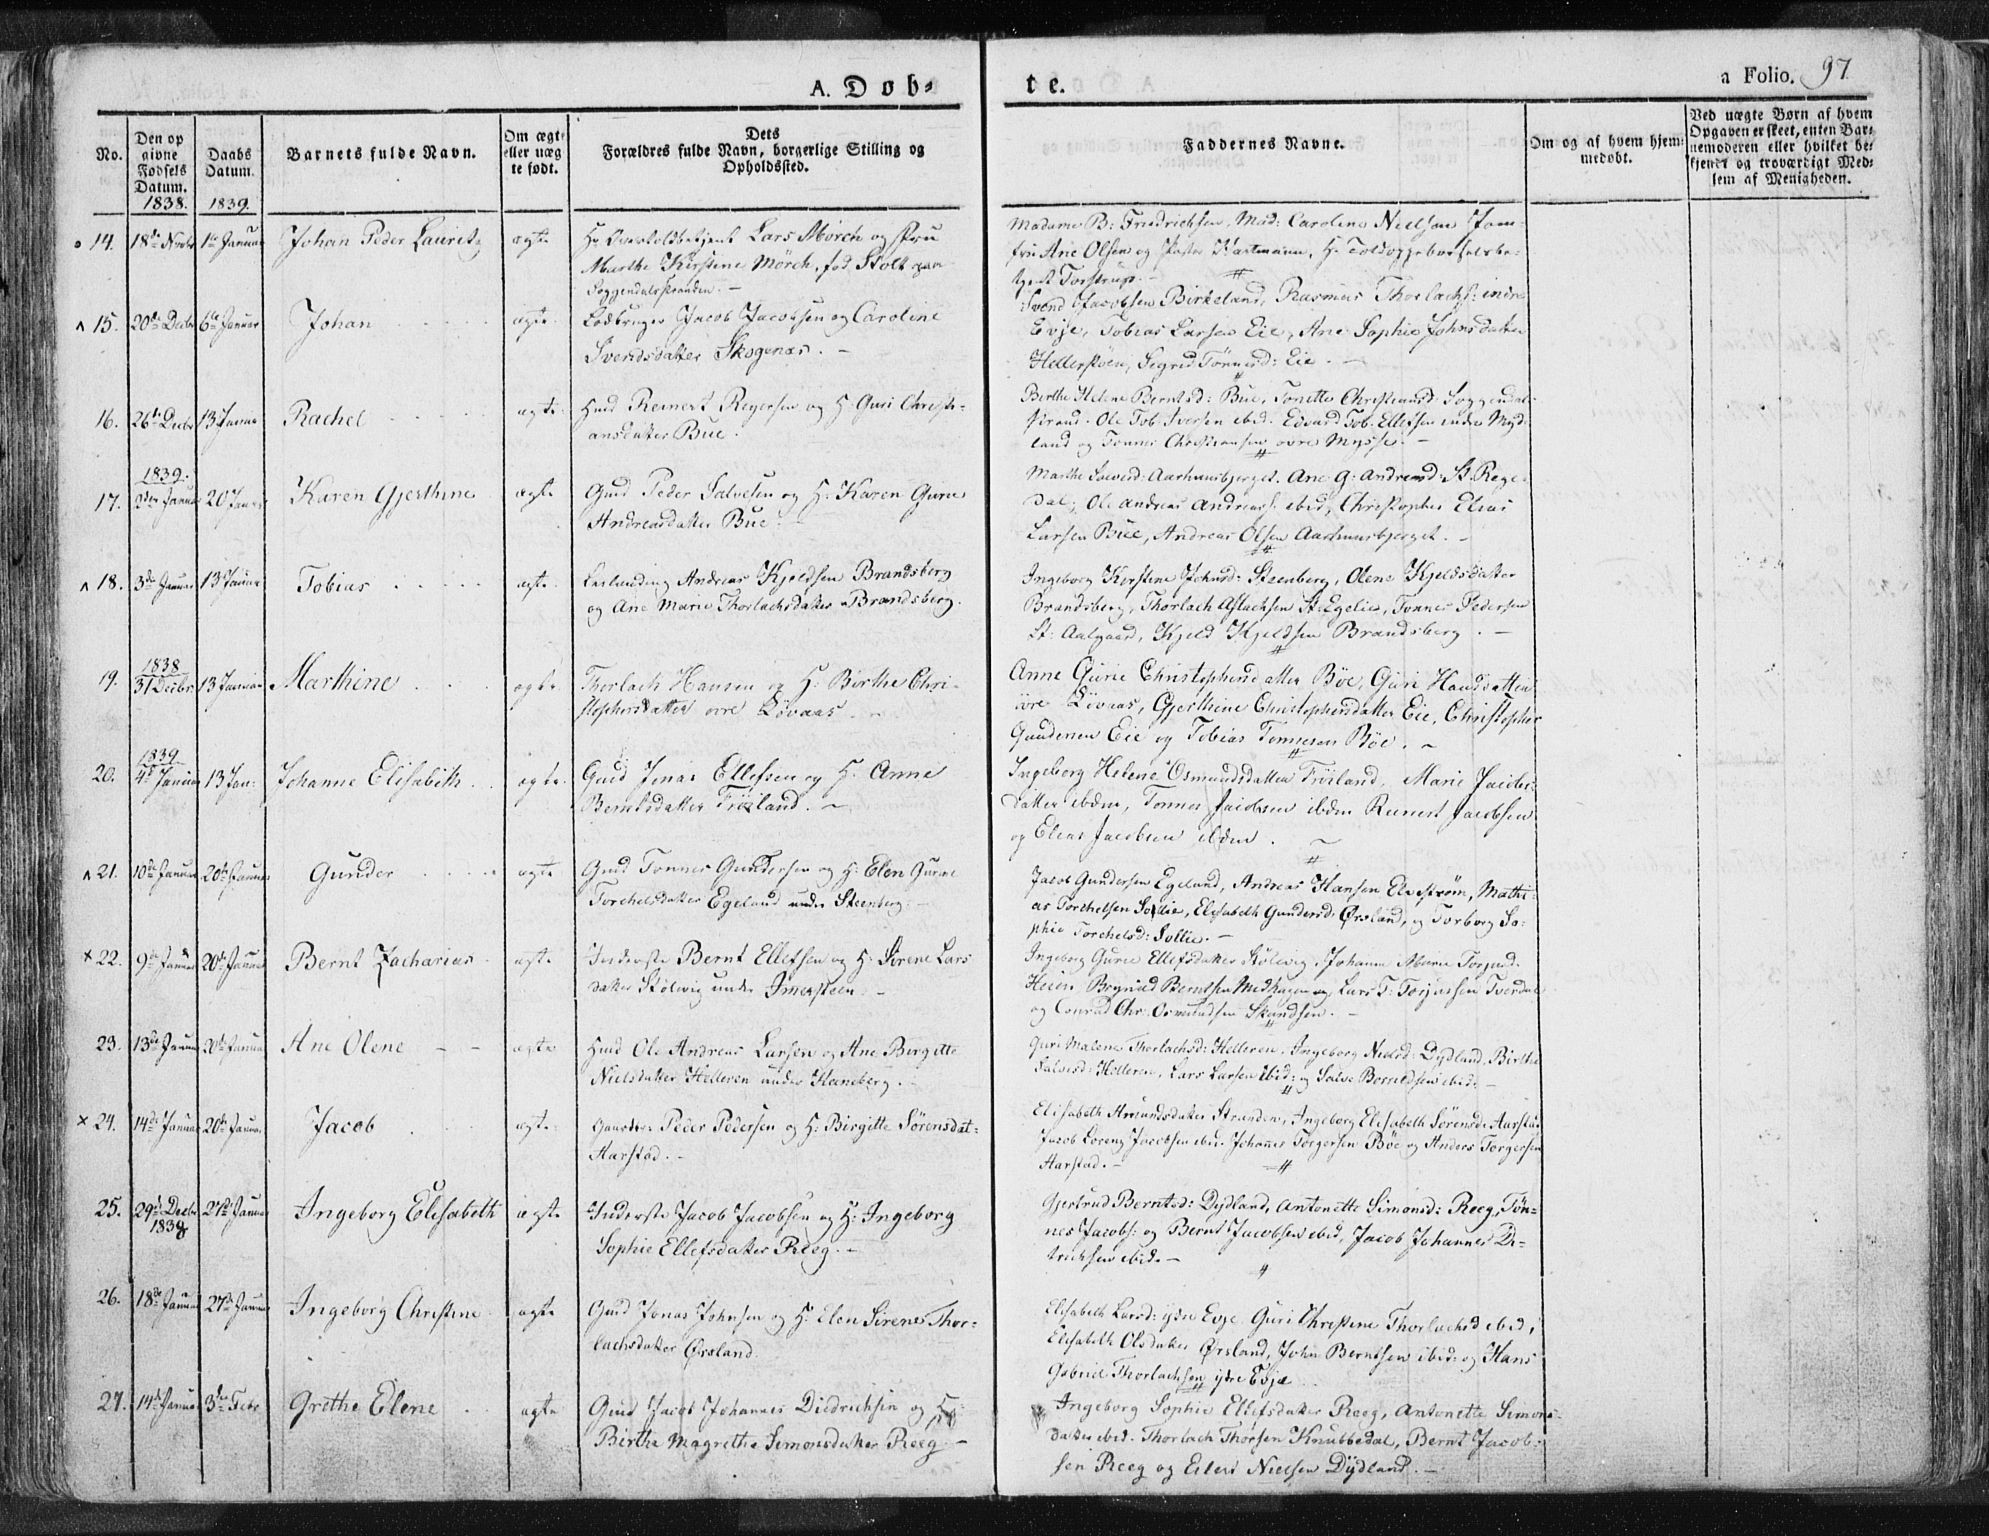 A. Døb-
te.
a Folio. 97
No.
Den op
givne
Fødsels
Datum.
1838.
Daabs
Datum.
1839.
Barnets fulde Navn.
Om ægte
eller uæg
te født.
Dets
Forældres fulde Navn, borgerlige Stilling og
Opholdssted.
Faddernes Navne.
Om og af hvem hjem-
medøbt.
Ved uægte Børn af hvem
Opgaven er skeet, enten Bar-
nemoderen eller hvilket be-
kjendt og troværdigt Med-
lem af Menigheden.
14. 18de Novbr 1te Januar Johan Peder Lauritz ægte Hr Lars Mörch og Fru
Marthe Kirstine Mörch, fød Stolt
Soggendalsstranden. -
Madame B: Friedrichsen, Mad: Caroline Nielsen Jom-
fru Ane Olsen og Hartmann, Hr Toldoppebørselsbe-
tjent Torstrup. -
15. 20de Decbr 6te Januar Johan ægte Jacob Jacobsen og Caroline
Svendsdatter Skogenæs. -
Svend Jacobsen Birkeland, Rasmus Thorlachs: indre
Evje, Tobias Larsen Eie, Ane Sophie Johnsdatter
Hellersøen, Segred Tønnesd: Eie. -
16. 26de Decbr 13 Januar Rachel ægte Gmd Reinert Reyersen og H: Guri Christi-
ansdatter Bue.
Birthe Helene Berntsd: Bue, Tonette Christiansd: Soggendals
strand. Ole Tob: Iversen ibid. Edvard Tob. Ellefsen indre Myd-
land og Tønnes Christiansen øvre Mysse. -
1839.
17. Januar 20 Januar Karen Gjerthine ægte Gmd Peder Salvesen og H: Karen Gurie
Andreasdatter Bue -
Marthe Aarhuusbjerget. Ane G: Andreasd: St. Rege-
dal; Ole Andreas Andreass: ibid, Christopher Elias
Larsen Bue, Andreas Olsen Aarhuusbjerget. -
18. 3de Januar 13 Januar Tobias ægte Andreas Kjeldsen Brandsberg
og Ane Marie Thorlachsdatter Brandsberg.
Ingeborg Kirstine Johnsd: Steenberg, Olene Kjeldsdatter
Brandsberg, Thorlach Aslachsen St: Egelie, Tønnes Pedersen
St: Aalgaard, Kjeld Kjeldsen Brandsberg. -
1838
19. 31 Decbr. 13 Januar Marthine ægte Thorlach Hansen og H: Birthe Chri-
stophersdatter øvre Lövaas. -
Anne Gurie Christophersdatter Böe, Guri Hansdatter
övre Lövaas, Gjerthine Christophersdatter Eie, Christopher
Gundersen Eie og Tobias Tønnesen Böe. -
1839
20. 4de Januar 13 Jan: Johanne Elisabeth ægte Gmd Jonas Ellefsen og H. Anne
Berntsdatter Fröiland. -
Ingeborg Helene Osmundsdatter Fröiland, Marie Jacobs-
datter ibdm, Tønnes Jacobsen ibdm Reinert Jacobsen
og Elias Jacobsen ibdm. -
21. 10de Januar 20de Januar Gunder ægte Gmd Tønnes Gundersen og H: Elen Gurine
Torchelsdatter Egeland under Steenberg. -
Jacob Gundersen Egeland, Andreas Hansen Elvestrøm, Mathi-
as Torchelsen Sollie, Elisabeth Gundersd. Ørsland, og Torborg So-
phie Torchelsd: Sollie. -
22. 9de Januar 20de Januar Bernt Zacharias ægte Inderste Bernt Ellefsen og H: Sørene Lars
datter Stölevig under Immersteen. -
Ingeborg Gurie Ellefsdatter Stölevig, Johanne Marie Torjusd.
Heien Brynild Berntsen Medhaugen og Lars T: Torjussen Tverdal
og Conrad Chr. Osmundsen Skandsen. -
23. 13de Januar 20de Januar Ane Olene ægte Gmd Ole Andreas Larsen og Ane Birgitte
Nielsdatter Helleren under Haneberg. -
Guri Malene Thorlachsd: Helleren, Ingeborg Nielsd: Dydland, Birthe
Salvesd: Helleren, Lars Larsen ibid: og Salve Borrildsen ibid. -
24. 14de Januar 20de Januar Jacob ægte Peder Pedersen og H: Birgitte Sörensdat-
Aarstad. -
Elisabeth Amundsdatter Stranden, Ingeborg Elisabeth Sörensd. Aarstad
Jacob Lorentz Jacobsen ibid. Johannes Torgersen Böe og Anders Torgersen
Aarstad. -
25. 29de Decbr
1838 27de Januar Ingeborg Elisabeth ægte Inderste Jacob Jacobsen og H: Ingeborg
Sophie Ellefsdatter Reeg. -
Gjertrud Berntsd: Dydland, Antonette Simonsd: Reeg, Tön-
nes Jacobs: og Bernt Jacobsen ibid, Jacob Johannes Di-
trichsen ibid. -
26. 18de Januar 27de Januar Ingeborg Christine ægte Gmd Jonas Johnsen og H: Elen Sirene Thor-
lachsdatter Ørsland.
Elisabeth Larsd: ydre Evje Guri Christine Thorlachsd ibid,
Elisabeth Olsdatter Ørsland, John Berntsen ibid: og Hans
Gabriel Thorlachsen ydre Evje
27. 14de Januar 3de Febr Grethe Elene ægte Gmd Jacob Johannes Diedrichsen og H:
Birthe Magrethe Simonsdatter Reeg. -
Ingeborg Sophie Ellefsdatter Reeg, Antonette Simons-
datter ibid. Thorlach Thorsen Knubbedal, Bernt Jacob-
sen Reeg og Eilert Nielsen Dydland. -